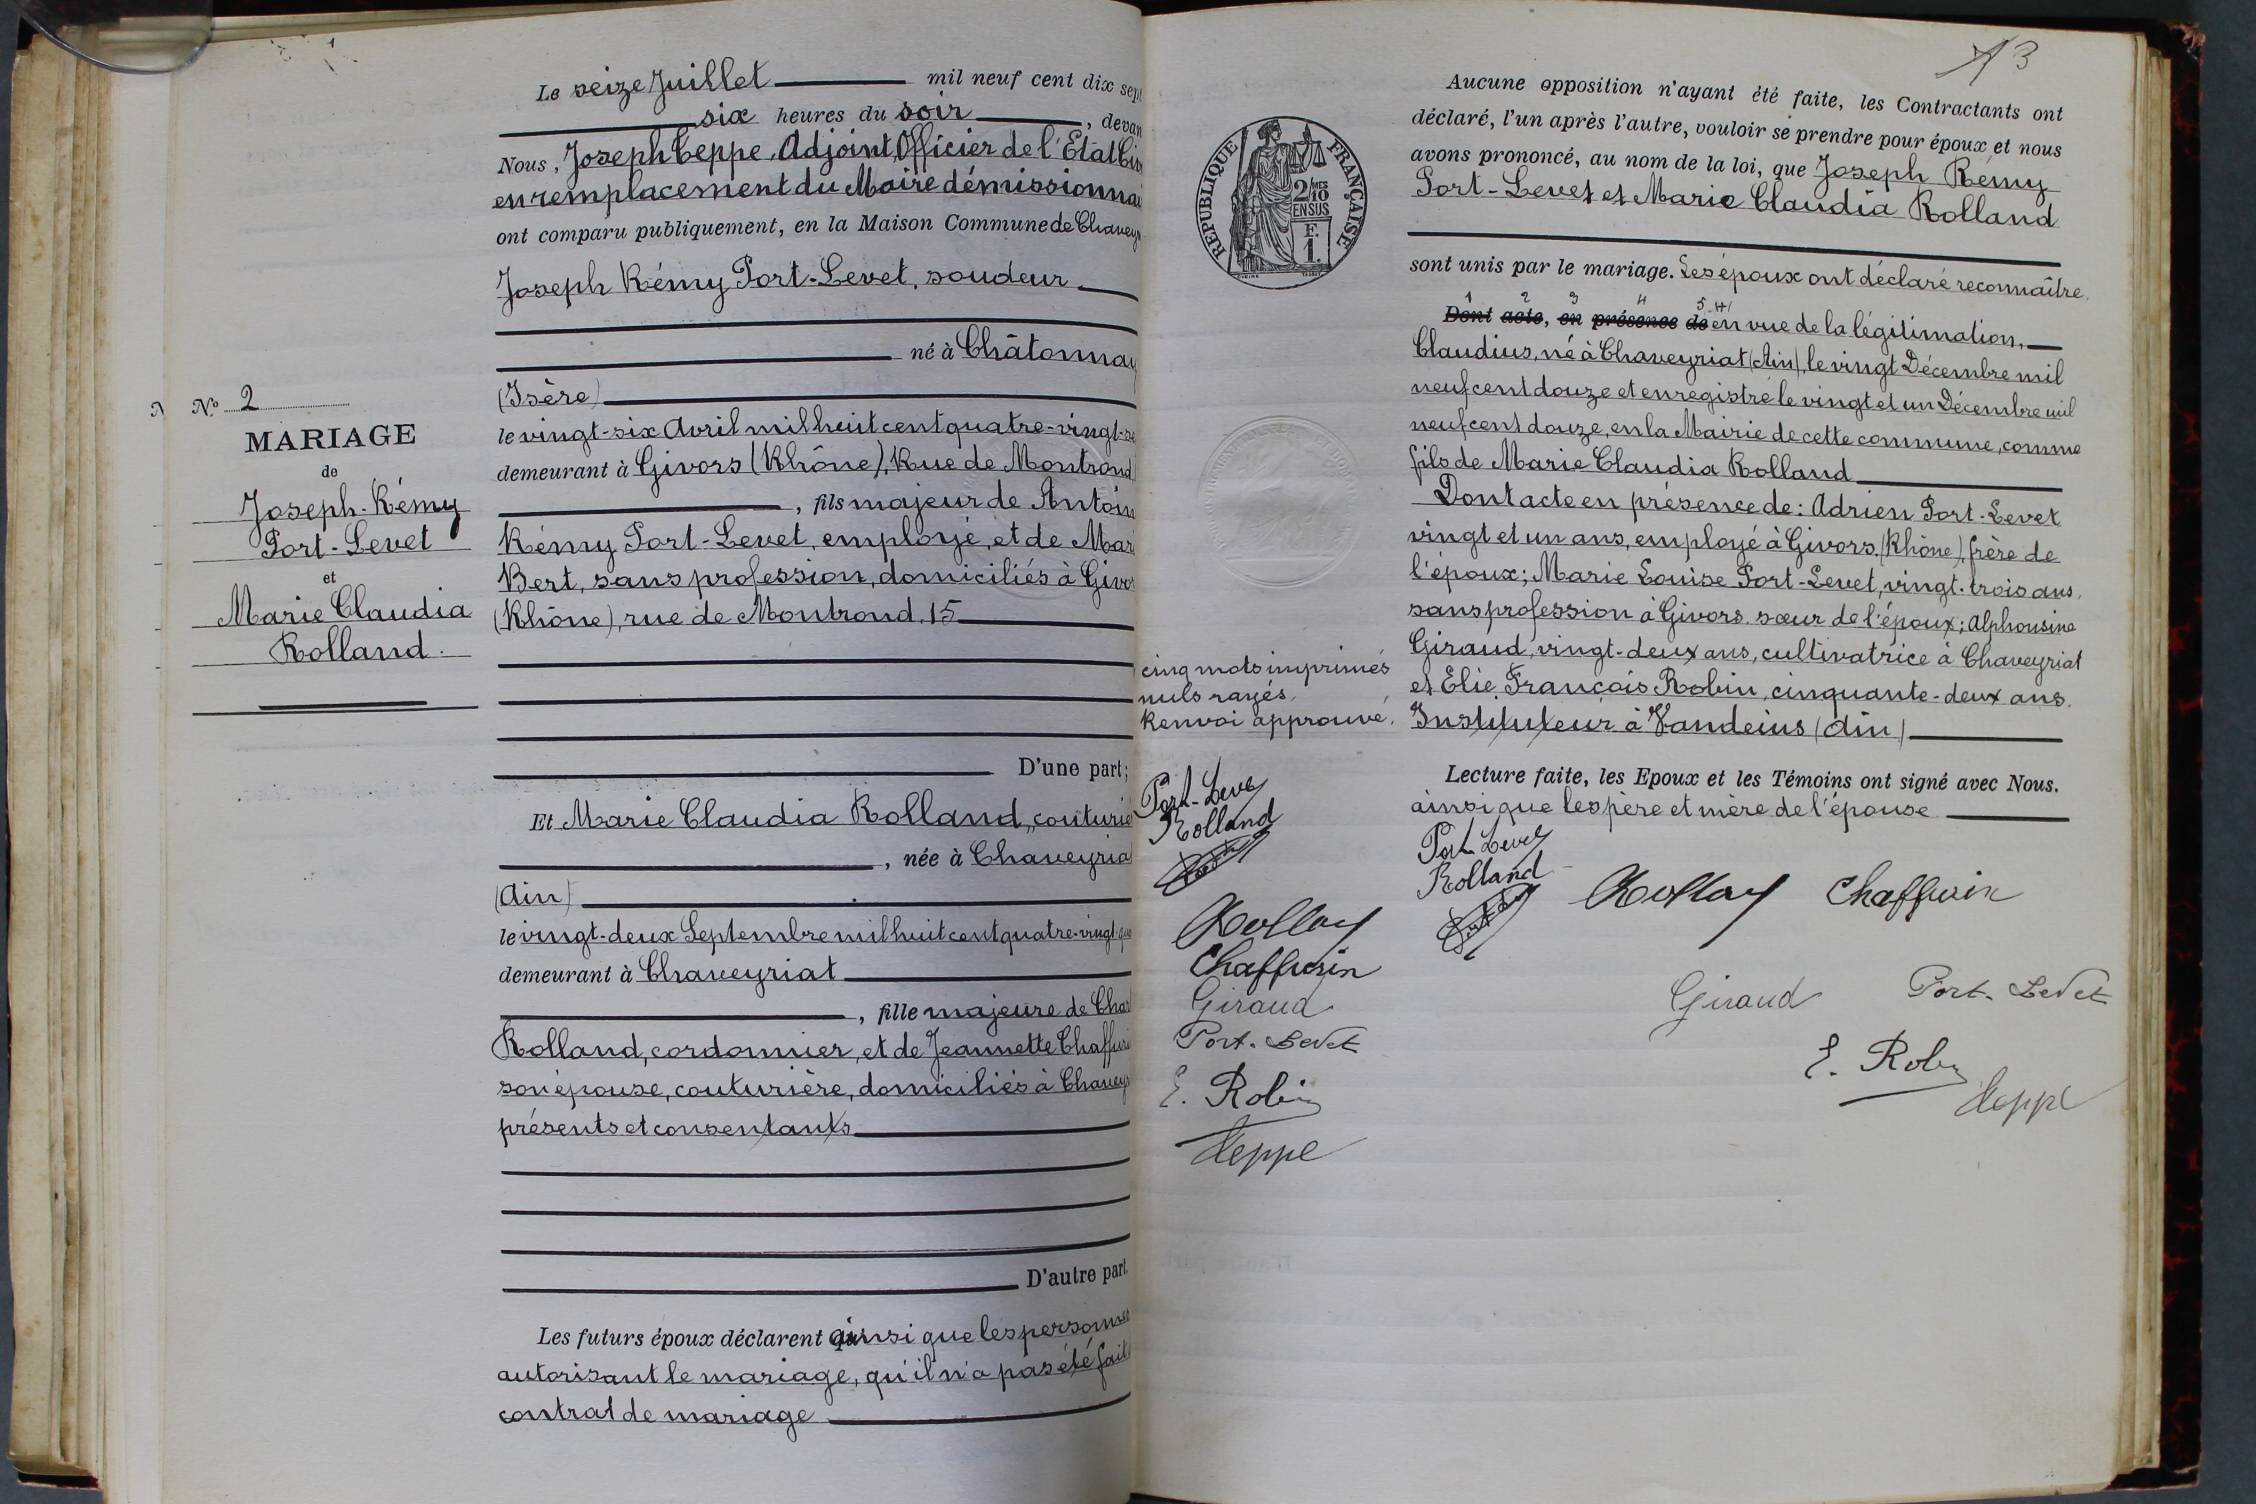 N° 2
MARIAGE
de
Joseph-Rémy
Port-Levet
et
Marie Claudia
Rolland.
Le seize Juillet mil neuf cent dix sept
six heures du soir, devan
Nous, Joseph Ceppe, Adjoint, Officier de l'Etat Civ
en remplacement du Maire démissionnai
ont comparu publiquement, en la Maison Commune de Chavey
Joseph Rémy Port-Levet, soudeur
né à Châtonnay
(Isère)
le vingt-six Avril mil huit cent quatre-vingt-
demeurant à Givors (Rhône), Rue de Montrond
, fils majeur de Antoin
Rémy Port-Levet, employé, et de Mar
Bert, sans profession, domiciliés à Givo
(Rhône), rue de Montrond, 15
D'une part;
Et Marie Claudia Rolland, couturiè
, née à Chaveyria
(Ain)
le vingt-deux Septembre mil huit cent quatre-vingt-
demeurant à Chaveyriat
, fille majeure de Char
Rolland, cordonnier, et de Jeannette Chaffur
son épouse, couturière, domiciliés à Chavey
présents et consentants
D'autre part.
Les futurs époux déclarent ainsi que les personnes
autorisant le mariage, qu'il n'a pas été fait
contrat de mariage
13
RÉPUBLIQUE FRANÇAISE
2/10 MES
EN SUS
F.
1.
Aucune opposition n'ayant été faite, les Contractants ont
déclaré, l'un après l'autre, vouloir se prendre pour époux et nous
avons prononcé, au nom de la loi, que Joseph Rémy
Port-Levet et Marie Claudia Rolland
sont unis par le mariage. Les époux ont déclaré reconnaître,
1 2 3 4 5
Dont acte, en présence de en vue de la légitimation,
Claudius, né à Chaveyriat (Ain), le vingt Décembre mil
neuf cent douze et enregistré le vingt et un Décembre mil
neuf cent douze, en la Mairie de cette commune, comme
fils de Marie Claudia Rolland
Dont acte en présence de : Adrien Port-Levet
vingt et un ans, employé à Givors (Rhône), frère de
l'époux; Marie Louise Port-Levet, vingt-trois ans,
sans profession à Givors, sœur de l'époux; Alphonsine
Giraud, vingt-deux ans, cultivatrice à Chaveyriat
et Elie François Robin, cinquante-deux ans,
Instituteur à Vandeins (Ain)
Lecture faite, les Epoux et les Témoins ont signé avec Nous.
ainsi que les père et mère de l'épouse
cinq mots imprimés
nuls rayés.
Renvoi approuvé.
Port-Levet
Rolland
Rollay
Chaffurin
Giraud
Port-Levet
E. Robin
Ceppe
Port Levet
Rolland
Rollay Chaffurin
Giraud Port-Levet
E. Robin
Ceppe